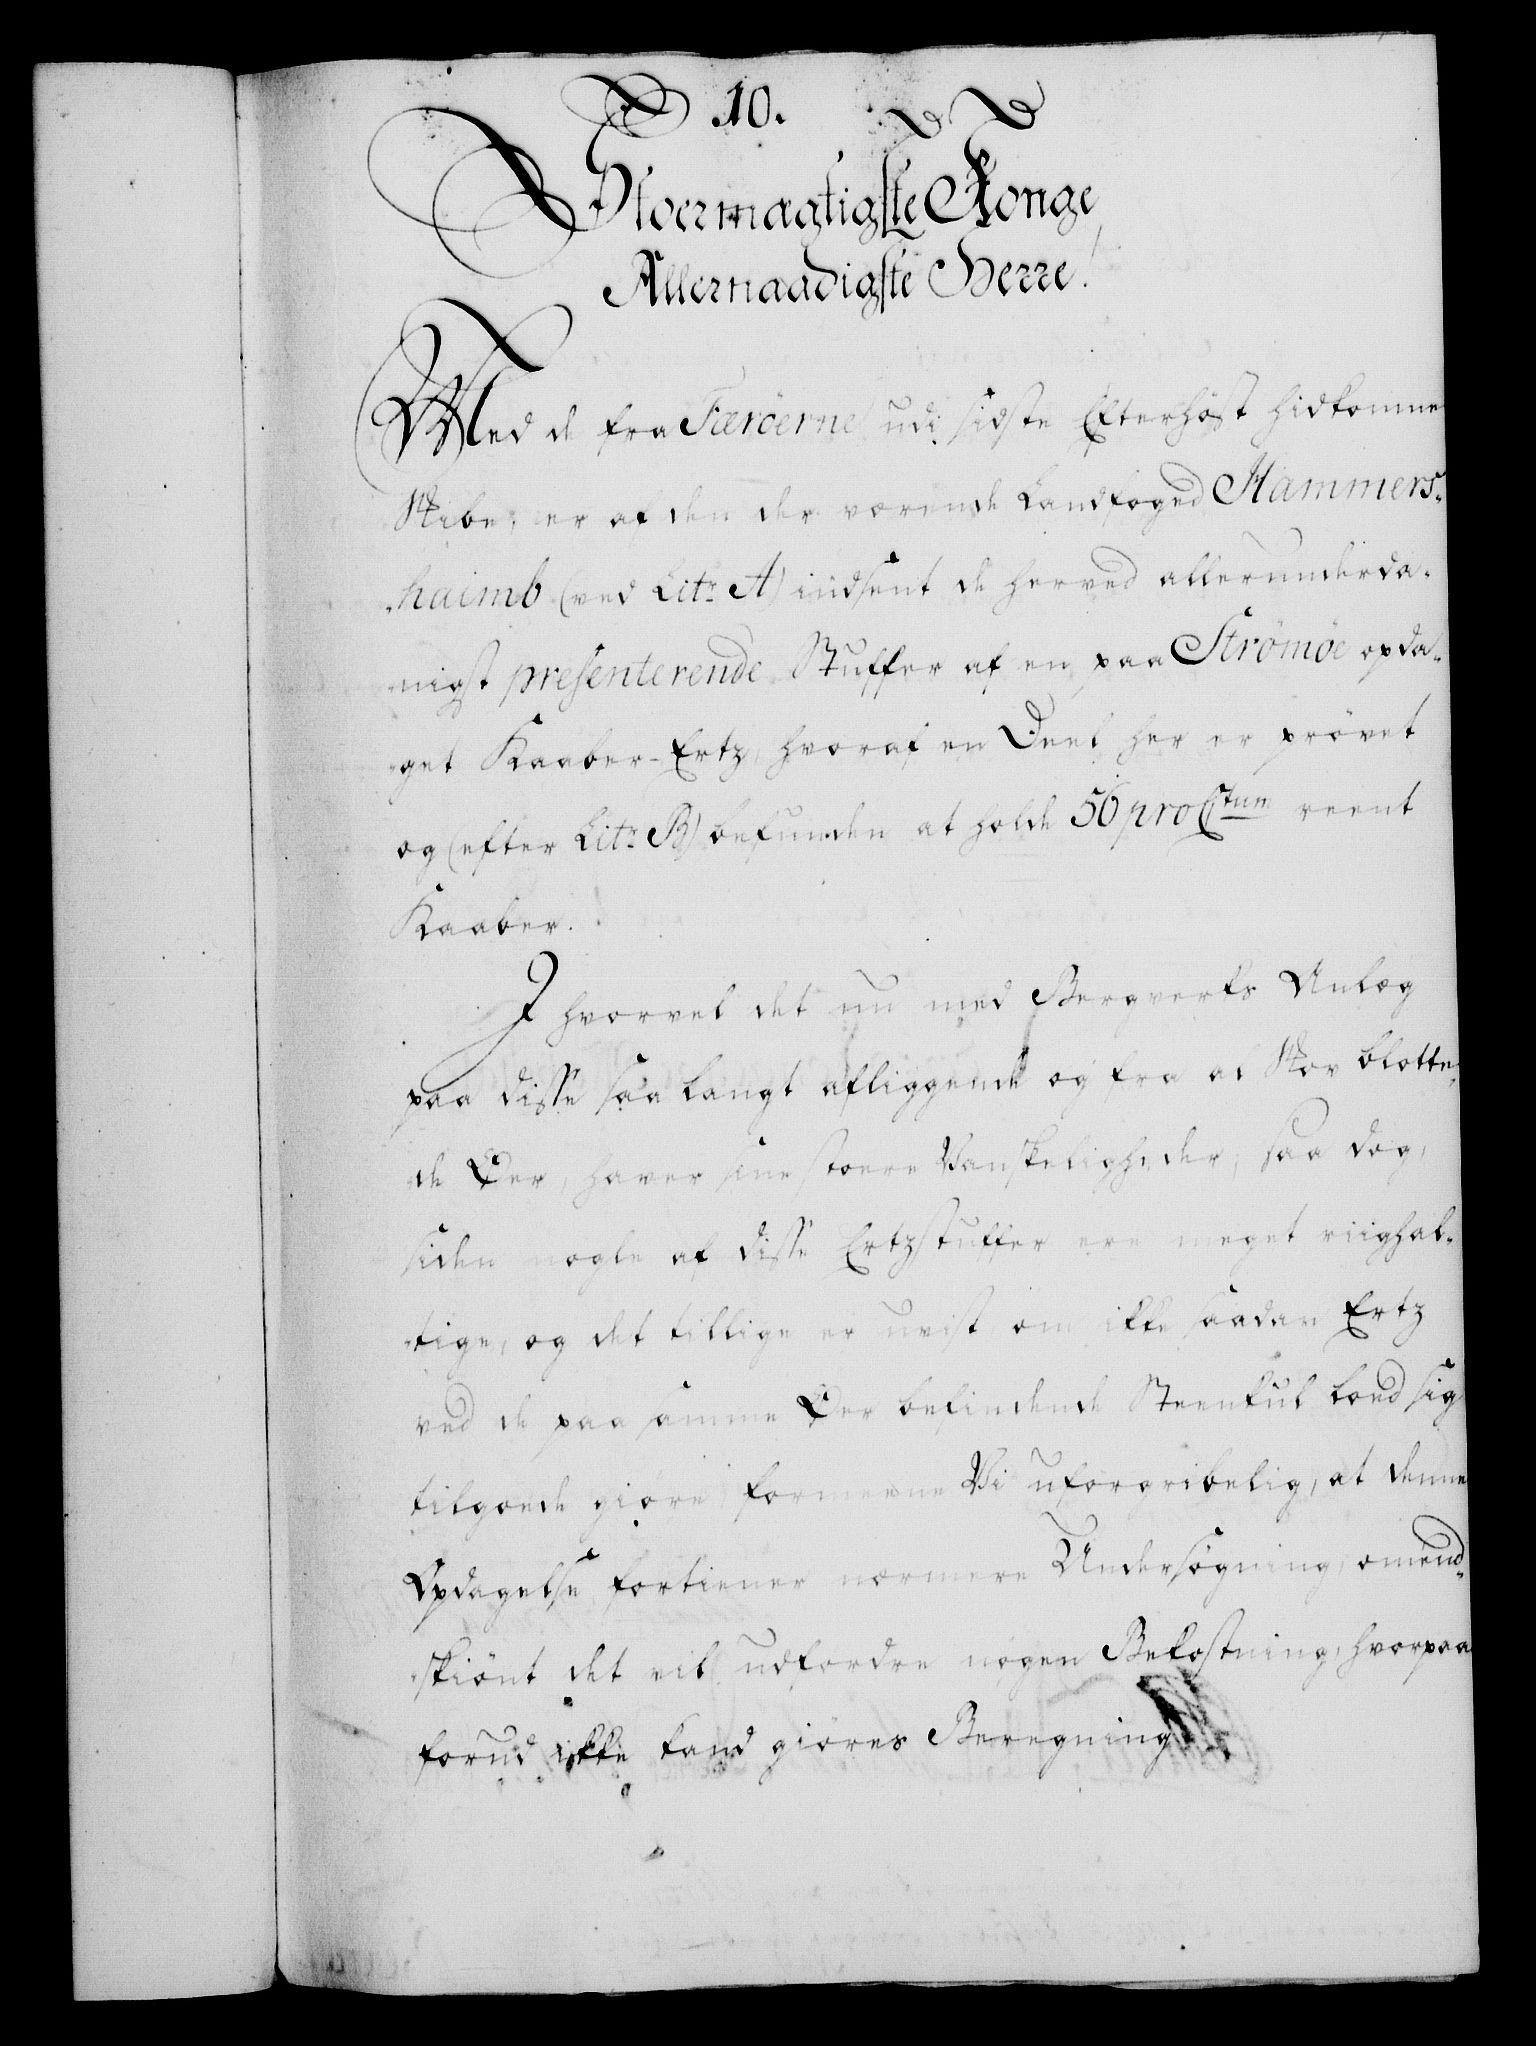 10.
Stoermægtigste Konge,
Allernaadigste Herre!
Med de fra Færöerne udi sidste Efterhöst hidkomne
Skibe, er af den der værende Landfoged Hammers-
haimb (ved Litr. A) indsent de herved allerunderda-
nigst presenterende Stuffer af en paa Strömöe opda-
get Kaaber-Ertz, hvoraf en Deel her er prövet
og (efter Litr. B) befunden at holde 56 pro Ctum reent
Kaaber.
Ihvorvel det nu med Bergverks Anlæg
paa disse saa langt afliggende og fra al Skov blotte-
de Öer, haver sine stoere Vanskeligheder, saa dog,
siden nogle af disse Ertzstuffer ere meget riighal-
tige, og det tillige er uvist om ikke saadan Ertz
ved de paa samme Öer befindende Steenkul loed sig
tilgoede giöre, formeene Vi uforgribelig, at denne
Opdagelse fortiener nærmere Undersögning, omend-
skiönt det vil udfordre nogen Bekostning, hvorpaa
forud ikke kand giöres Beregning